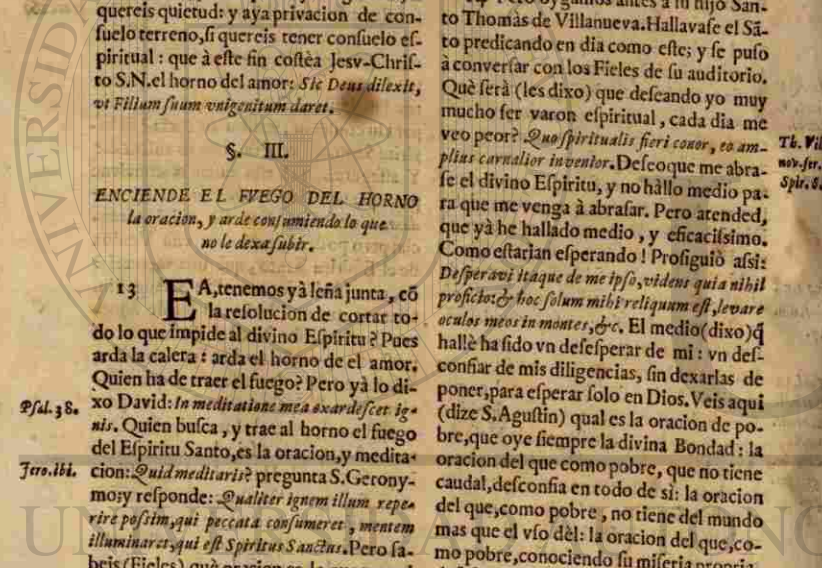 quereis quietud: y aya privacion de con-
ſuelo terreno, ſi quereis tener conſuelo eſ-
piritual : que à eſte fin coſtèa Jesv-Chriſ-
to S.N. el horno del amor: Sic Deus dilexit,
vt Filium ſuum vnigenitum daret.
§. III.
ENCIENDE EL FVEGO DEL HORNO
la oracion, y arde conſumiendo lo que
no le dexa ſubir.
13 EA, tenemos yà leña junta, cõ
la reſolucion de cortar to-
do lo que impide al divino Eſpiritu? Pues
arda la calera : arda el horno de el amor.
Quien ha de traer el fuego? Pero yà lo di-
Pſal. 38. xo David: In meditatione mea exardeſcet ig-
nis. Quien buſca, y trae al horno el fuego
del Eſpiritu Santo, es la oracion, y medita-
Jero. ibi. cion: Quid meditaris? pregunta S. Gerony-
mo; y reſponde: Qualiter ignem illum repe-
rire poſsim, qui peccata conſumeret, mentem
illuminaret, qui eſt Spiritus Sanctus. Pero ſa-
beis (Fieles) què oracion es
oygamos antes à ſu hijo San-
to Thomàs de Villanueva. Hallavaſe el Sã-
to predicando en dia como eſte; y ſe puſo
à converſar con los Fieles de ſu auditorio.
Què ſerà (les dixo) que deſeando yo muy
mucho ſer varon eſpiritual, cada dia me
veo peor? Quo ſpiritualis fieri conor, eo am-
plius carnalior invenior. Deſeo que me abra-
ſe el divino Eſpiritu, y no hàllo medio pa-
ra que me venga à abraſar. Pero atended,
que yà he hallado medio, y eficaciſsimo.
Como eſtarian eſperando! Proſiguiò aſsi:
Deſperavi itaque de me ipſo, videns quia nihil
proficio: & hoc ſolum mihi reliquum eſt, levare
oculos meos in montes, &c. El medio (dixo) q̃
hallè ha ſido vn deſeſperar de mi : vn deſ-
confiar de mis diligencias, ſin dexarlas de
poner, para eſperar ſolo en Dios. Veis aqui
(dize S. Aguſtin) qual es la oracion de po-
bre, que oye ſiempre la divina Bondad: la
oracion del que como pobre, que no tiene
caudal, deſconfia en todo de sì: la oracion
del que, como pobre, no tiene del mundo
mas que el vſo dèl: la oracion del que, co-
mo pobre, conociendo ſu miſeria propria
Th. Vil
nov. ſer.
Spir. S.
UNIVERSIDA